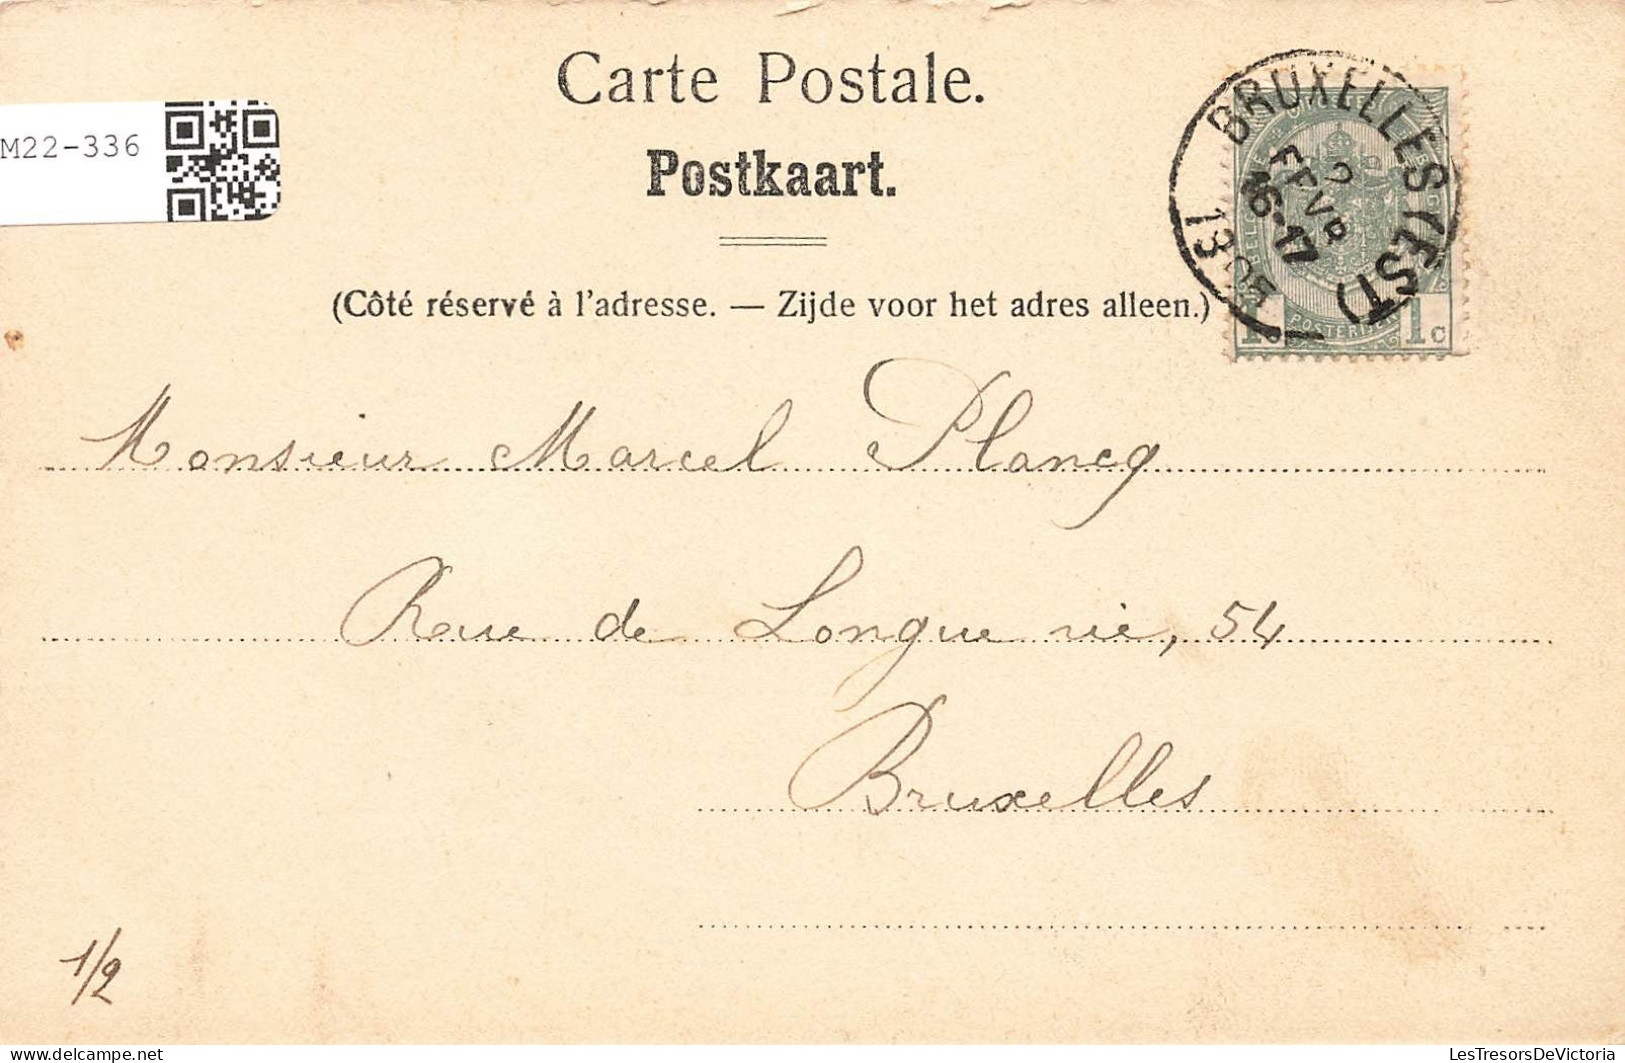 Carte Postale.
Postkaart.
M22-336
(Côté réservé à l'adresse. — Zijde voor het adres alleen.)
BRUXELLES (EST)
2
FEVR
16-17
1905
POSTERIJEN
1c
Monsieur Marcel Plancq
Rue de Longue vie, 54
Bruxelles
1/2
LesTresorsDeVictoria